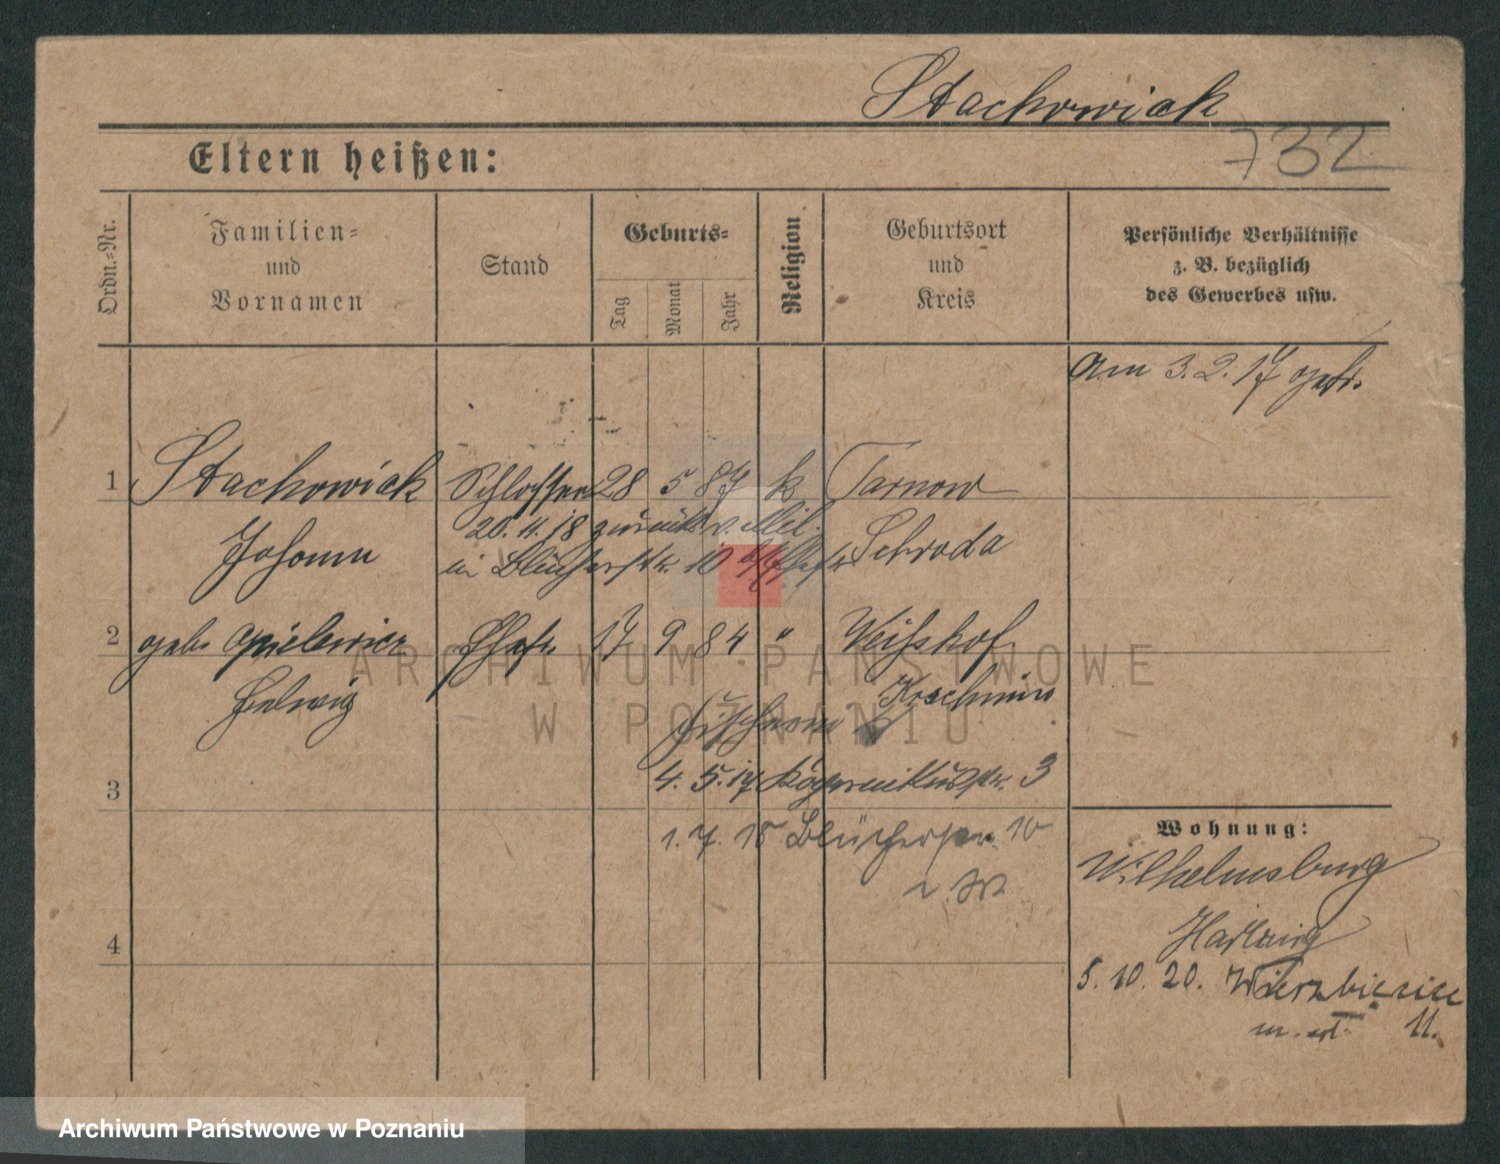 Stachowiak
732
Eltern heißen:
Ordn.-Nr.
Familien-
und
Vornamen
Stand
Geburts-
Tag
Monat
Jahr
Religion
Geburtsort
und
Kreis
Persönliche Verhältnisse
z. B. bezüglich
des Gewerbes usw.
Am 3. 2. 17 getr.
1 Stachowiak Schlosser 28 5 87 k Tarnow
20. 11. 18 zurück v. Mil.
Johann Schroda
in Blücherstr. 10
2 geb. Ehefr. 17 9 84 " Weißhof
Hedwig Koschmin
3
4. 5. 17 Kopernikusstr. 3
1. 7. 18 Blücherstr. 10
4
Wohnung:
Wilhelmsburg
Harburg
5. 10. 20. Wierzbięcice
11.
ARCHIWUM PAŃSTWOWE
W POZNANIU
Archiwum Państwowe w Poznaniu